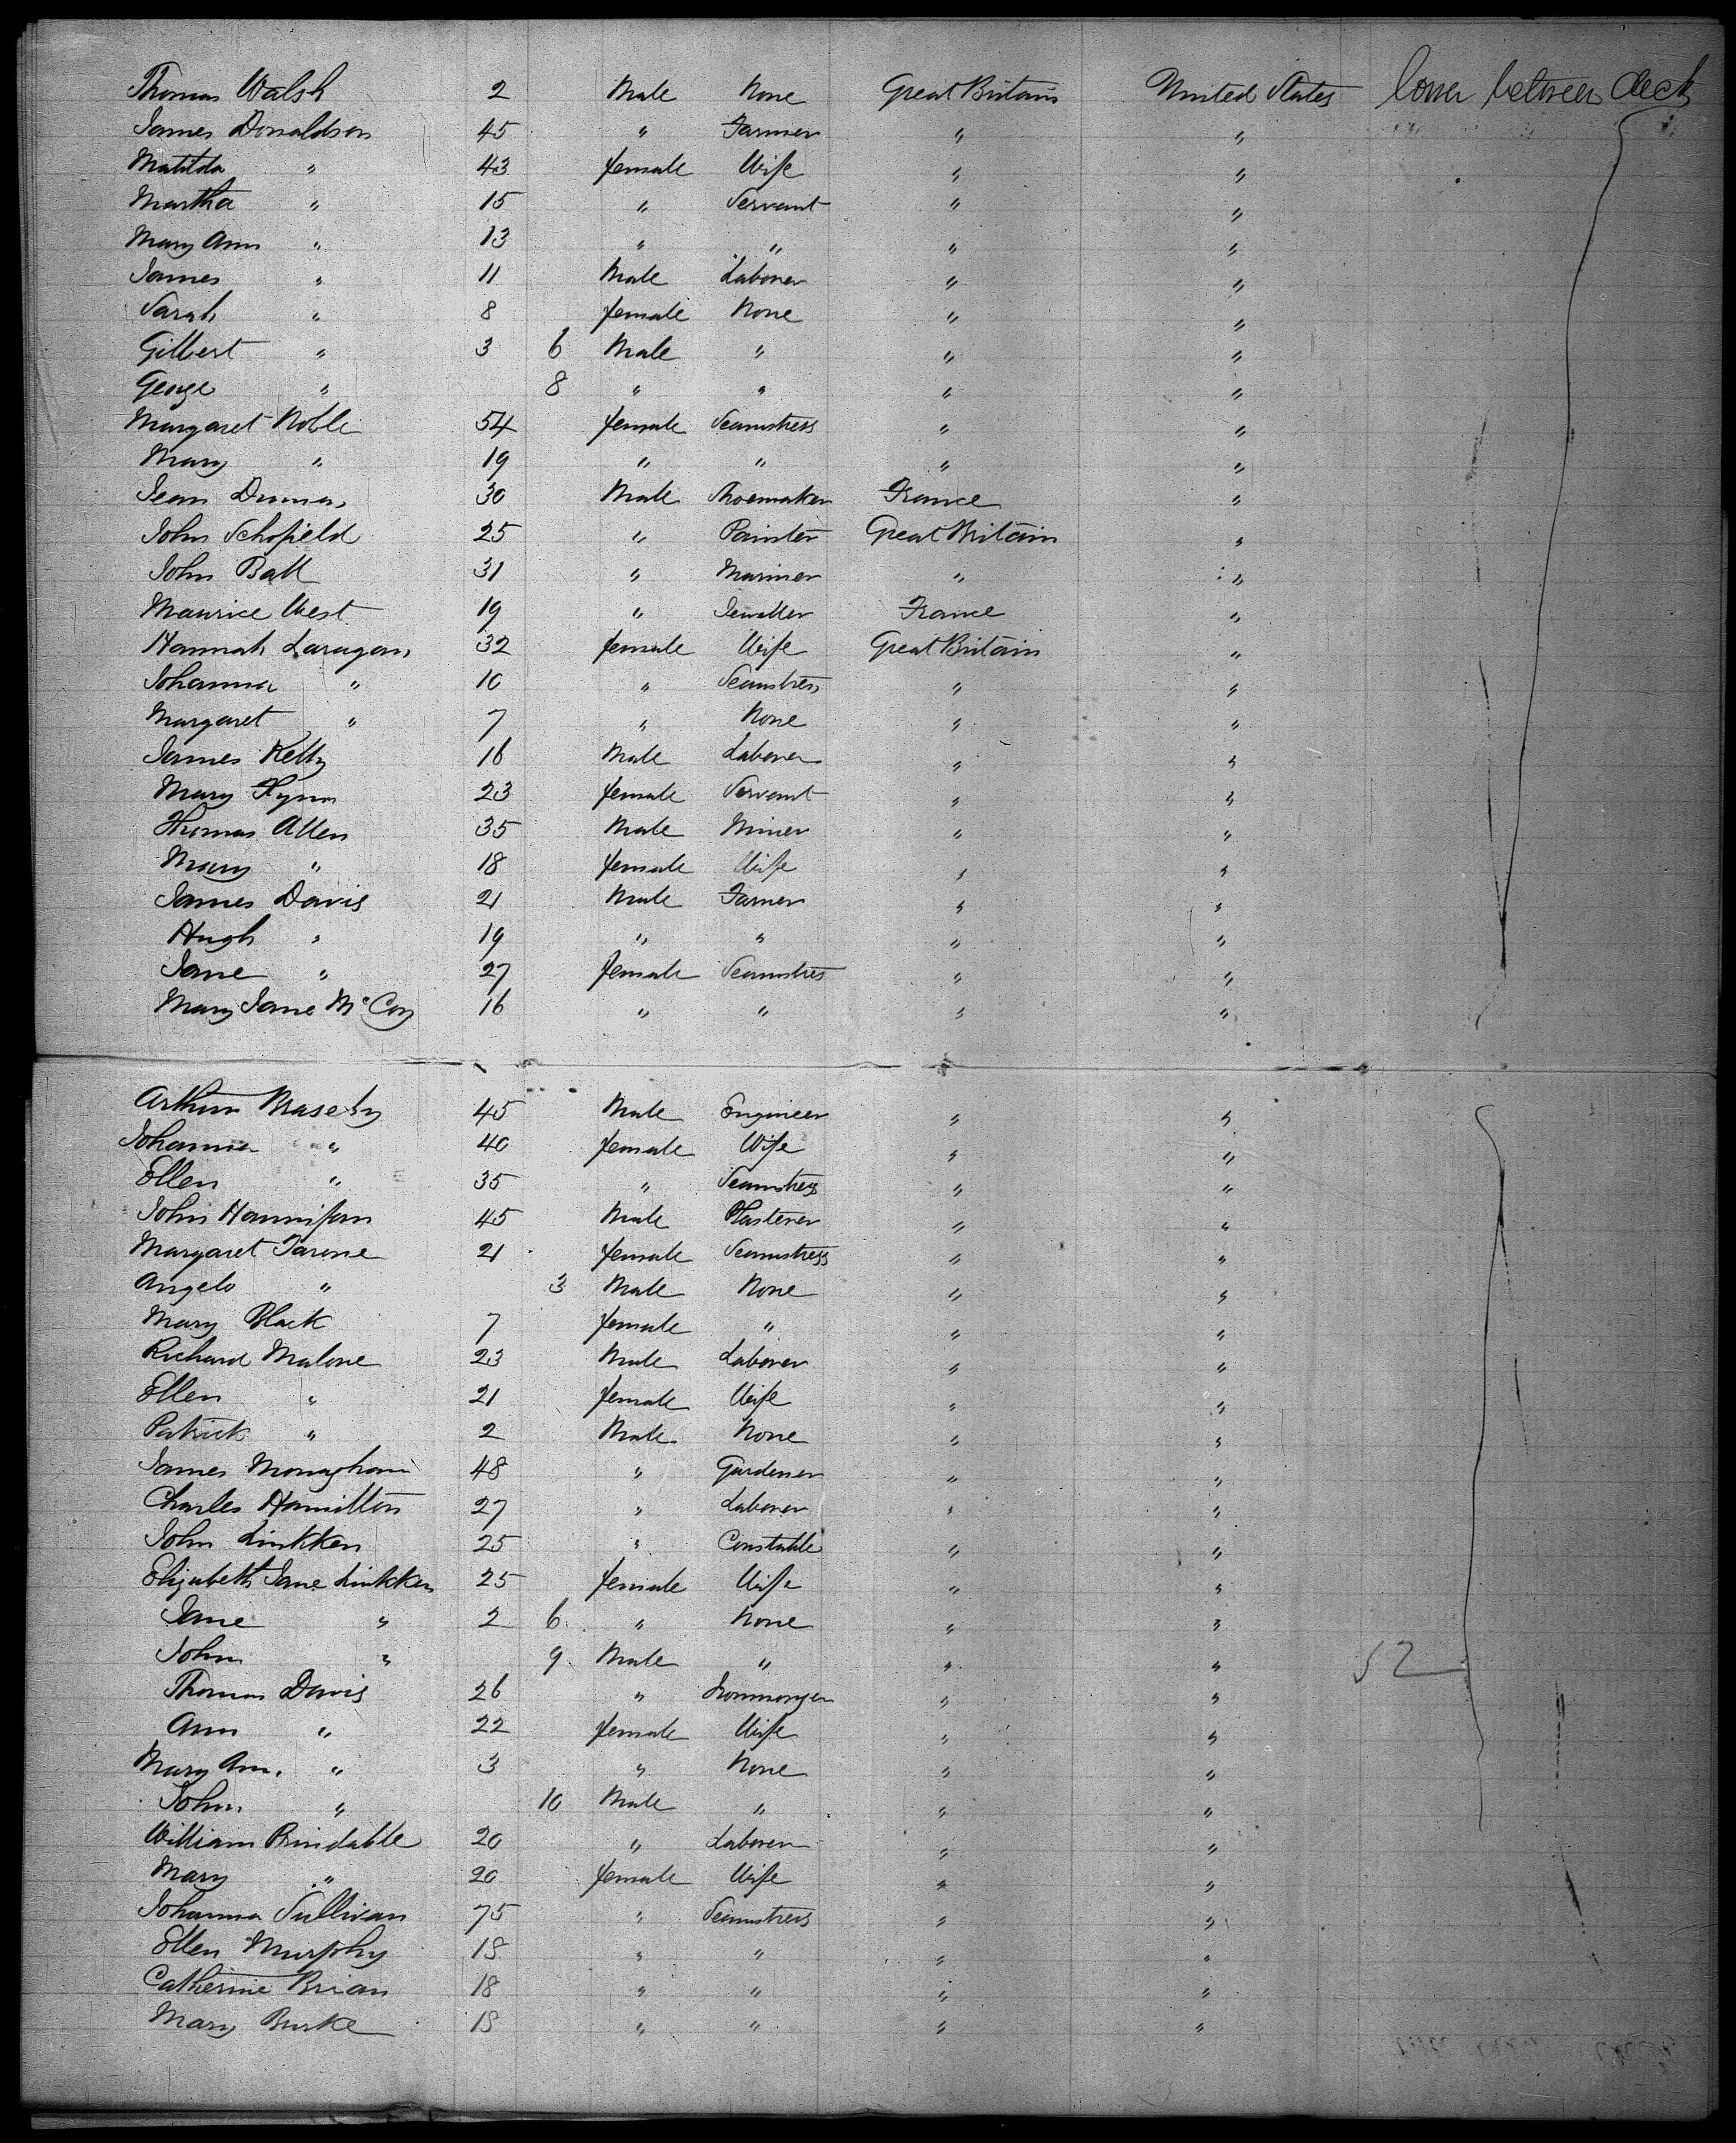 Thomas Walsh 2 Male None Great Britain United States lower between deck
James Donaldson 45 " Farmer " "
Matilda " 43 female Wife " "
Martha " 15 " Servant " "
Mary Ann " 13 " " " "
James " 11 Male Laborer " "
Sarah " 8 female None " "
Gilbert " 3 6 Male " " "
George " 8 " " " "
Margaret Noble 54 female Seamstress " "
Mary " 19 " " " "
Jean Dumas 30 Male Shoemaker France "
John Schofield 25 " Painter Great Britain "
John Ball 31 " Mariner " "
Maurice West 19 " Jeweller France "
Hannah Laragan 32 female Wife Great Britain "
Johanna " 10 " Seamstress " "
Margaret " 7 " None " "
James Kelly 16 Male Laborer " "
Mary Flynn 23 female Servant " "
Thomas Allen 35 Male Miner " "
Mary " 18 female Wife " "
James Davis 21 Male Farmer " "
Hugh " 19 " " " "
Jane " 27 female Seamstres " "
Mary Jane McCoy 16 " " " "
Arthur 45 Male Engineer " "
Johanna " 40 female Wife " "
Ellen " 35 " Seamstress " "
John Hannifan 45 Male Plasterer " "
Margaret Tarone 21 female Seamstress " "
Angelo " 3 Male None " "
Mary Black 7 female " " "
Richard Malone 23 Male Laborer " "
Ellen " 21 female Wife " "
Patrick " 2 Male None " "
James Monaghan 48 " Gardener " "
Charles Hamilton 27 " Laborer " "
John Linkken 25 " Constable " "
Elizabeth Jane Linkken 25 female Wife " "
Jane " 2 6 " None " "
John " 9 Male " " " 52
Thomas Davis 26 " Ironmonger " "
Ann " 22 female Wife " "
Mary Ann. " 3 " None " "
John " 10 Male " " "
William Brindable 20 " Laborer " "
Mary " 20 female Wife " "
Johanna Sullivan 75 " Seamstress " "
Ellen Murphy 18 " " " "
Catherine Brian 18 " " " "
Mary Burke 18 " " " "